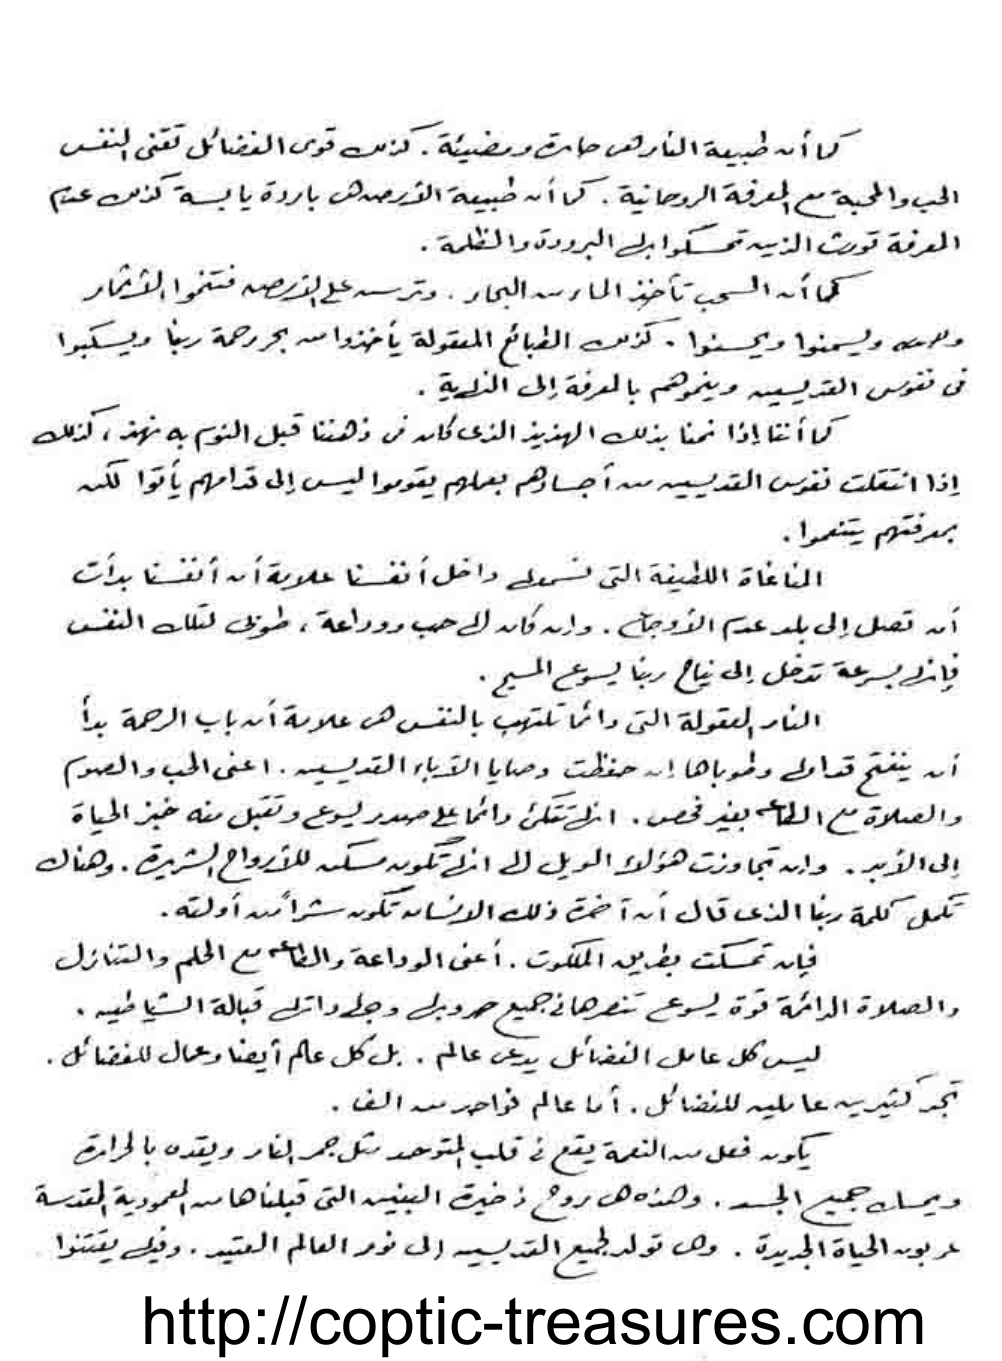 كما أن طبيعة النار هى حارة ومضيئة . كذلك قوى الفضائل تقنى النفس
الحب والمحبة مع المعرفة الروحانية . كما أن طبيعة الأرض هى باردة يابسة كذلك عدم
المعرفة تورث الذين تمسكوا بها البرودة والظلمة .
كما أن السحب تأخذ الماء من البحار . وترس على الأرض فتنموا الأثمار
ويسمنوا ويحسنوا . كذلك الطبائع المعقولة يأخذوا من بحر رحمة ربنا ويسكبوا
فى نفوس القديسين وينموهم بالمعرفة إلى النهاية .
كما أننا إذا نمنا بذلك الهذيذ الذى كان فى ذهننا قبل النوم به نهذ ، كذلك
إذا انتقلت نفوس القديسين من أجسادهم بعملهم يقوموا ليس إلى قدامهم يأتوا لكن
بمعرفتهم يتنعموا .
المناغاة اللطيفة التى نسمعها داخل أنفسنا علامة أن أنفسنا بدأت
أن تصل إلى بلد عدم الأوجاع . وإن كان لها حب ووداعة ، طوبى لتلك النفس
فإنها بسرعة تدخل إلى نياح ربنا يسوع المسيح .
النار المعقولة التى دائما تلتهب بالنفس هى علامة أن باب الرحمة بدأ
أن ينفتح قدامها وطوباها إن حفظت وصايا الآباء القديسين . اعنى الحب والصوم
والصلاة مع الطاعة بغير فحص . انها تتكئ دائما على صدر يسوع وتقبل منه خبز الحياة
إلى الأبد . وإن تجاوزت هؤلاء الويل لها انها تكون مسكن للأرواح الشريرة . وهناك
تكمل كلمة ربنا الذى قال أن آخرة ذلك الانسان تكون شراً من أولته .
فإن تمسكت بطريق الملكوت . أعنى الوداعة والطاعة مع الحلم والتنازل
والصلاة الدائمة قوة يسوع تنصرها فى جميع حروبها وجهاداتها قبالة الشياطين .
ليس كل عامل الفضائل يدعى عالم . بل كل عالم أيضا وعمال للفضائل .
تجد كثيرين عاملين للفضائل . أما عالم فواحد من الف .
يكون فعل من النعمة يقع فى قلب المتوحد مثل جمر النار ويقده بالحرارة
ويمسك جميع الجسد . وهذه هى روح ذخيرة البنين التى قبلناها من المعمودية المقدسة
عربون الحياة الجديدة . وهى تولد لجميع القديسين إلى نور العالم العتيد . وفيها يقتنوا
http://coptic-treasures.com